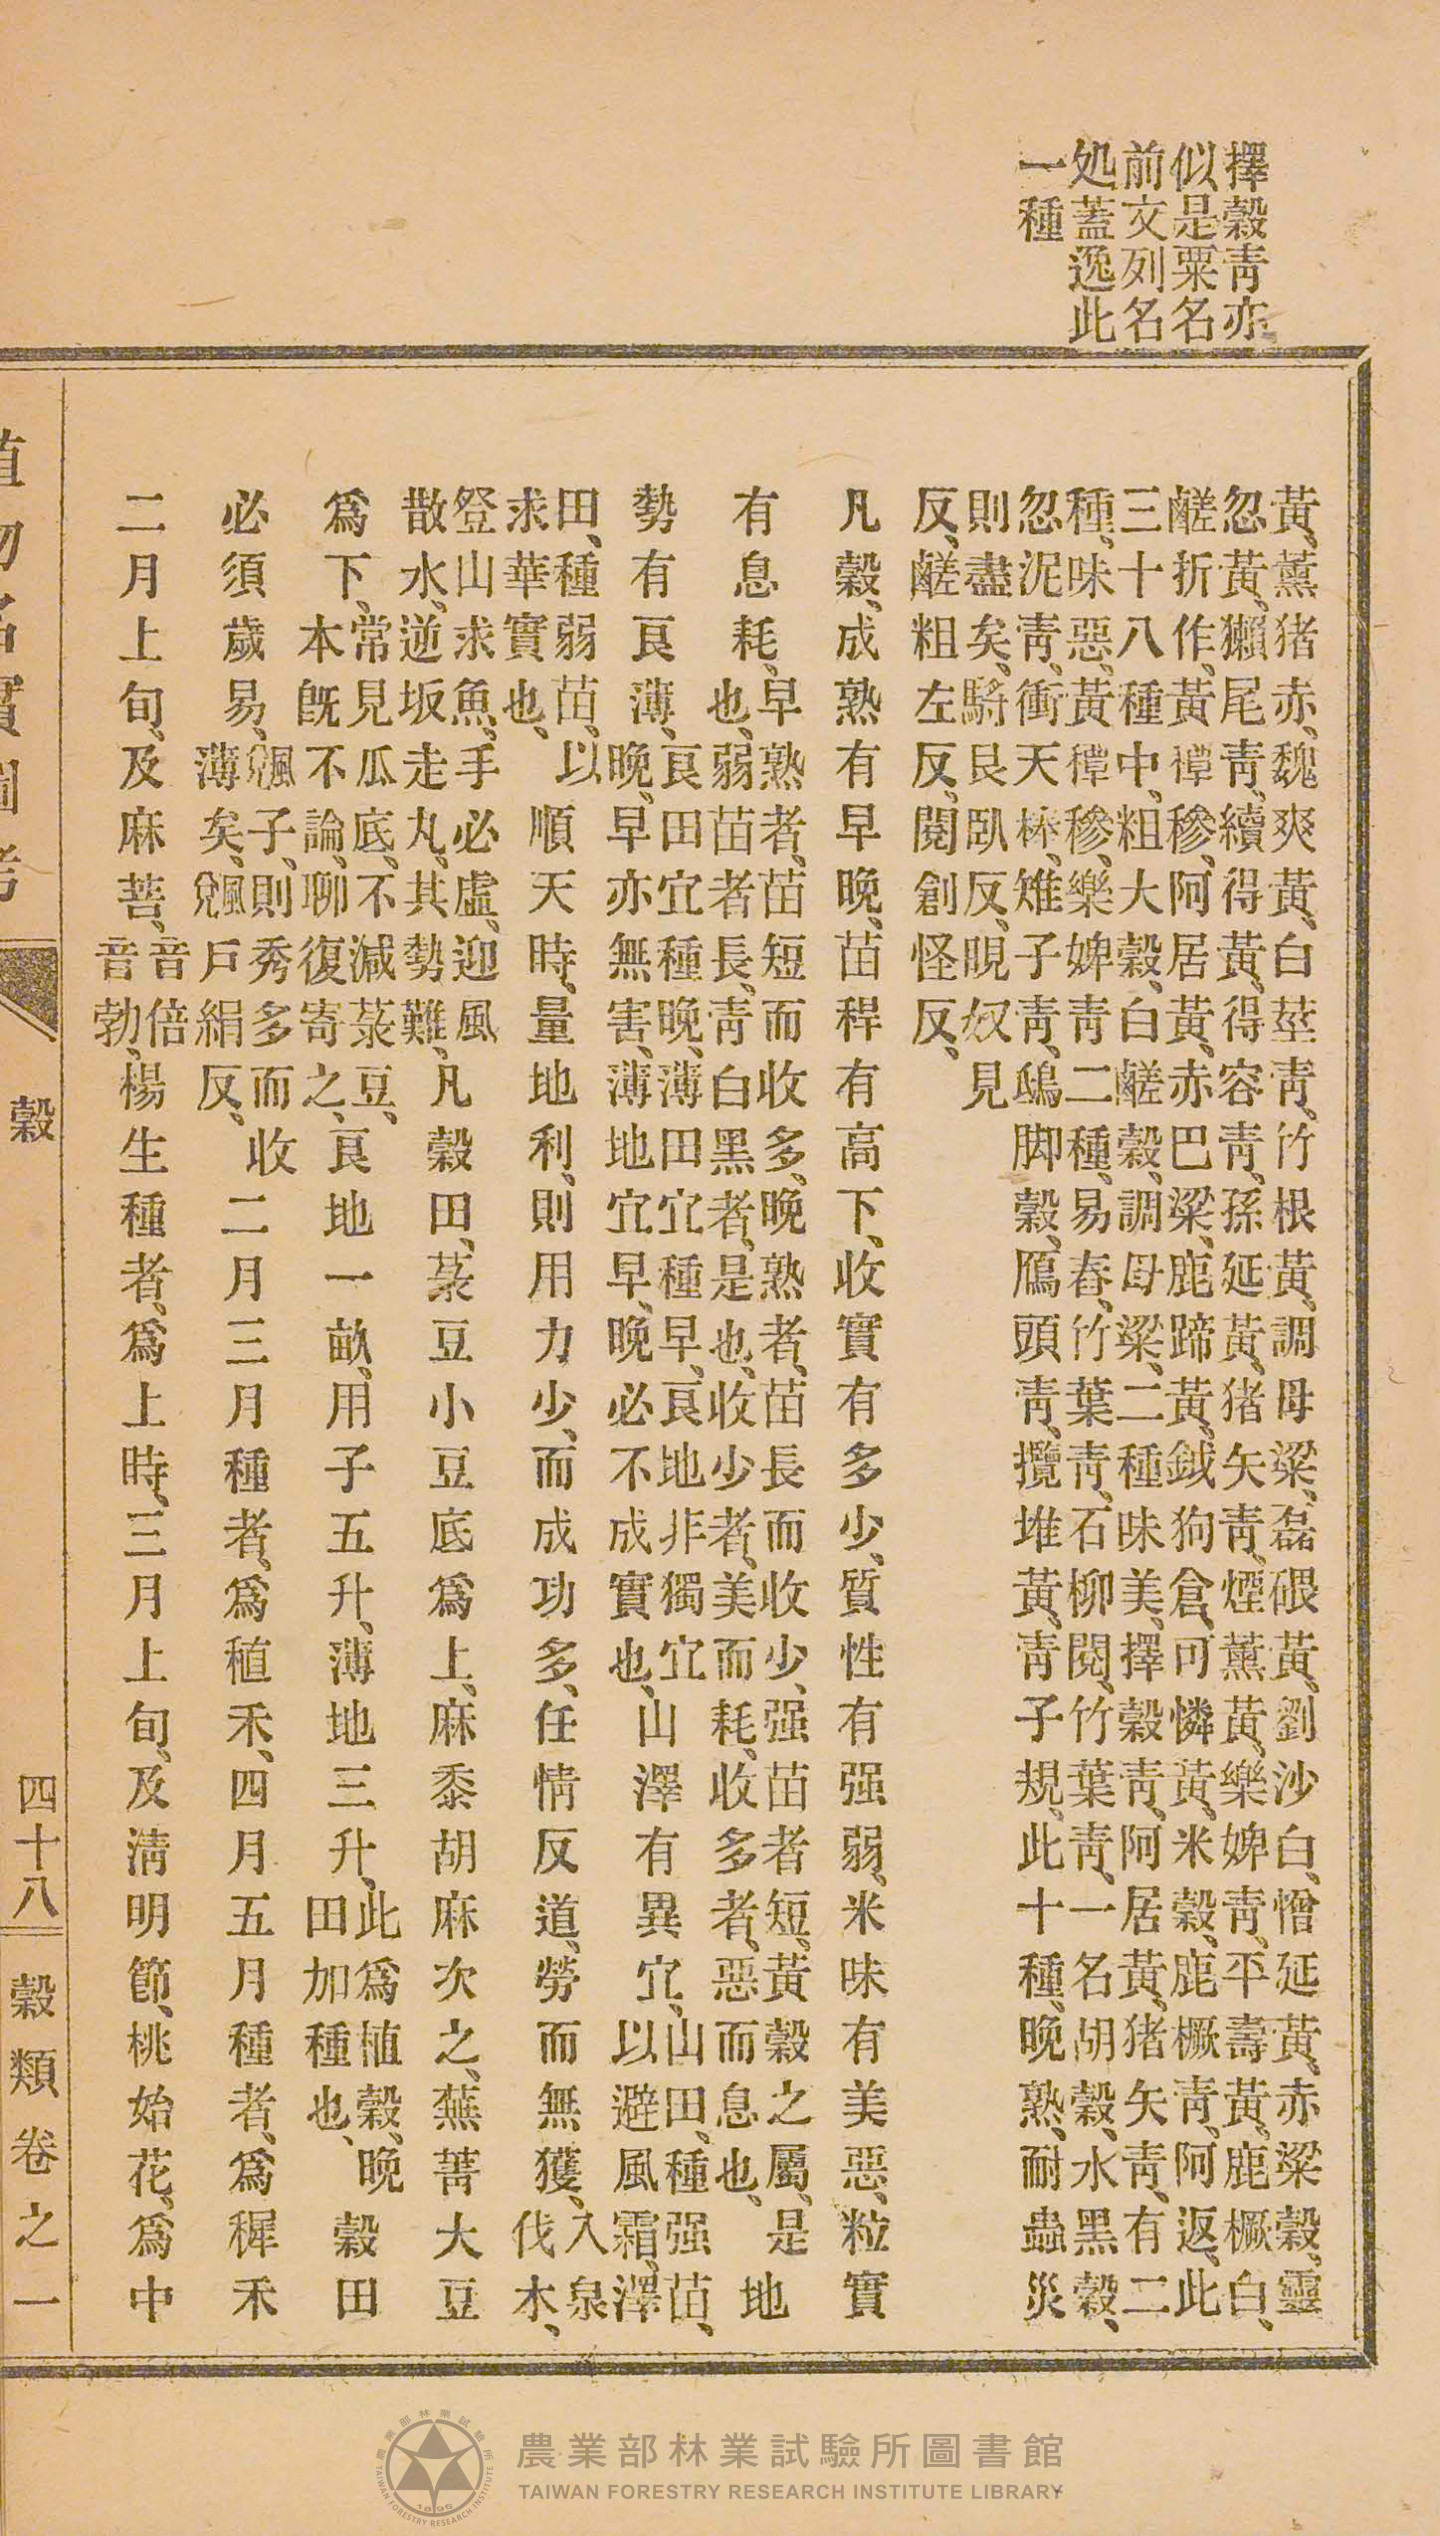 擇穀靑亦
似是粟名
前文列名
処蓋逸此
一種
黃、薰猪赤、魏爽黃、白莖靑、竹根黃、調母粱、磊碨黃、劉沙白、憎延黃、赤粱穀、靈
忽黃、獺尾靑、續得黃、得容靑、孫延黃、猪矢靑、煙薰黃、樂婢靑、平壽黃、鹿橛白、
鹺折作、黃䅯穇、阿居黃、赤巴粱、鹿蹄黃、鉞狗倉、可憐黃、米穀、鹿橛靑、阿返、此
三十八種中、粗大穀、白鹺穀、調母粱、二種味美、擇穀靑、阿居黃、猪矢靑、有二
種、味惡、黃䅯穇、樂婢靑二種、易舂、竹葉靑、石柳閱、竹葉靑、一名胡穀、水黑穀、
忽泥靑、衝天棒、雉子靑、鴟脚穀、鴈頭靑、攬堆黃、靑子規、此十種、晚熟、耐蟲災
則盡矣、䮭艮臥反、晛奴見
反、鹺粗左反、閱創怪反、
凡穀、成熟有早晚、苗稈有高下、收實有多少、質性有强弱、米味有美惡、粒實
有息耗、早熟者、苗短而收多、晚熟者、苗長而收少、强苗者短、黃穀之屬、是也、弱苗者長、靑白黑者、是也、收少者、美而耗、收多者、惡而息也、地
勢有良薄、良田宜種晚、薄田宜種早、良地非獨宜晚、早亦無害、薄地宜早、晚必不成實也、山澤有異宜、山田、種强苗、以避風霜、澤
田、種弱苗、以求華實也、順天時、量地利、則用力少、而成功多、任情反道、勞而無獲、入泉伐木、
登山求魚、手必虛、迎風散水、逆坂走丸、其勢難、凡穀田、菉豆小豆底爲上、麻黍胡麻次之、蕪菁大豆
爲下、常見瓜底、不減菉豆、本旣不論、聊復寄之、良地一畝、用子五升、薄地三升、此爲植穀、晚田加種也、穀田
必須歲易、𩗴子、則秀多而收薄矣、𩗴戶絹反、二月三月種者、爲稙禾、四月五月種者、爲穉禾
二月上旬、及麻菩、音倍音勃、楊生種者、爲上時、三月上旬、及淸明節、桃始花、爲中
植物名實圖考
穀
四十八
穀類卷之一
農業部林業試驗所圖書館
TAIWAN FORESTRY RESEARCH INSTITUTE LIBRARY
農業部林業試驗所
TAIWAN FORESTRY RESEARCH INSTITUTE
1896